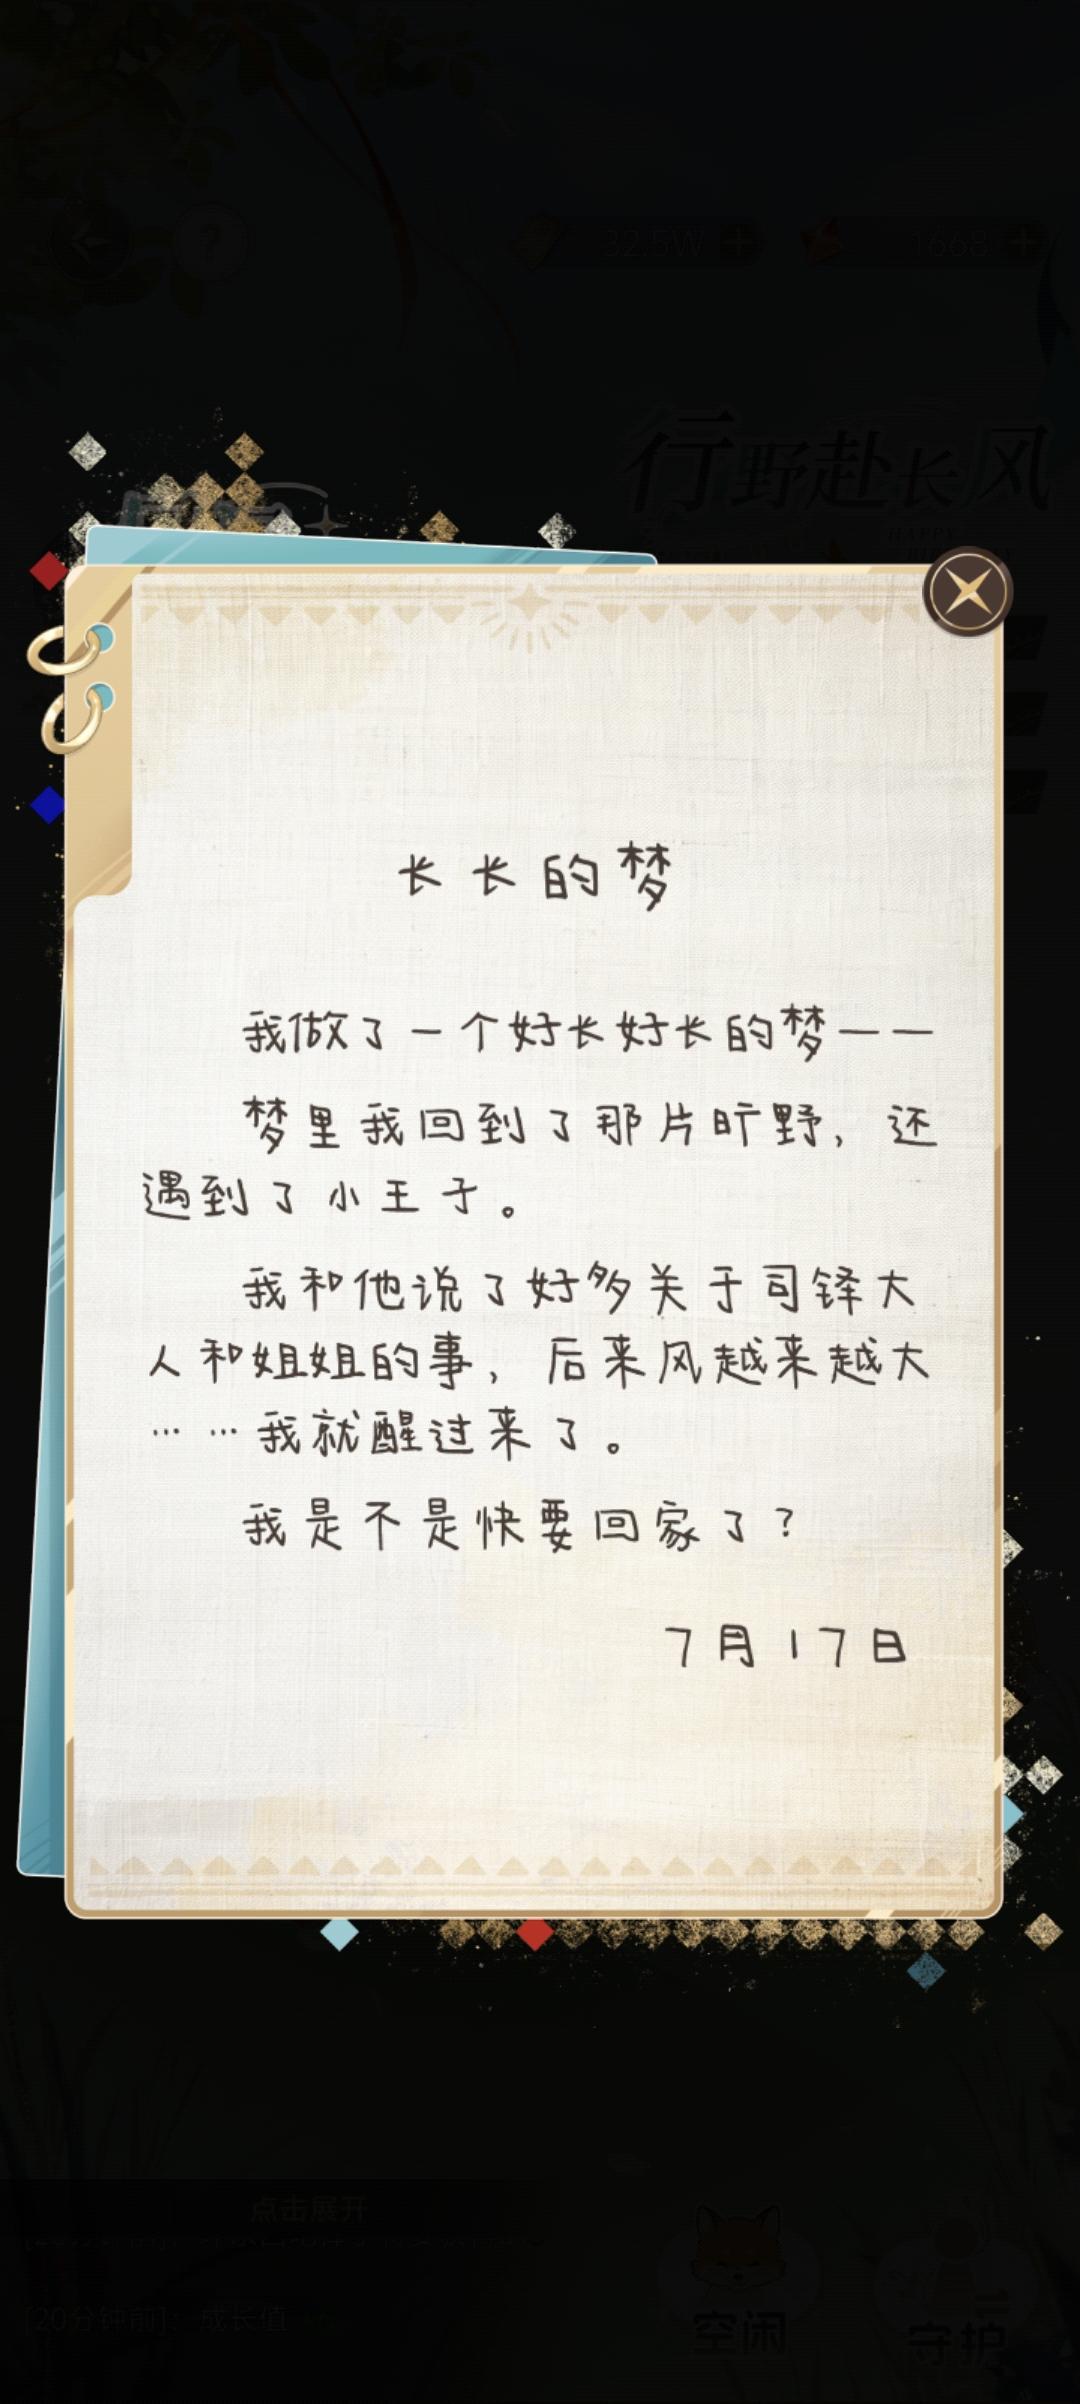 32.5W
1668
行野赴长风
HAPPY
长长的梦
我做了一个好长好长的梦——
梦里我回到了那片旷野，还
遇到了小王子。
我和他说了好多关于司铎大
人和姐姐的事，后来风越来越大
……我就醒过来了。
我是不是快要回家了？
7月17日
点击展开
[20分钟前]：成长值
空闲
守护